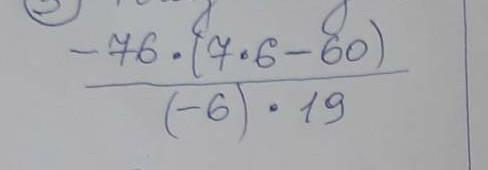 3)
-76·(7·6-60)
(-6)·19